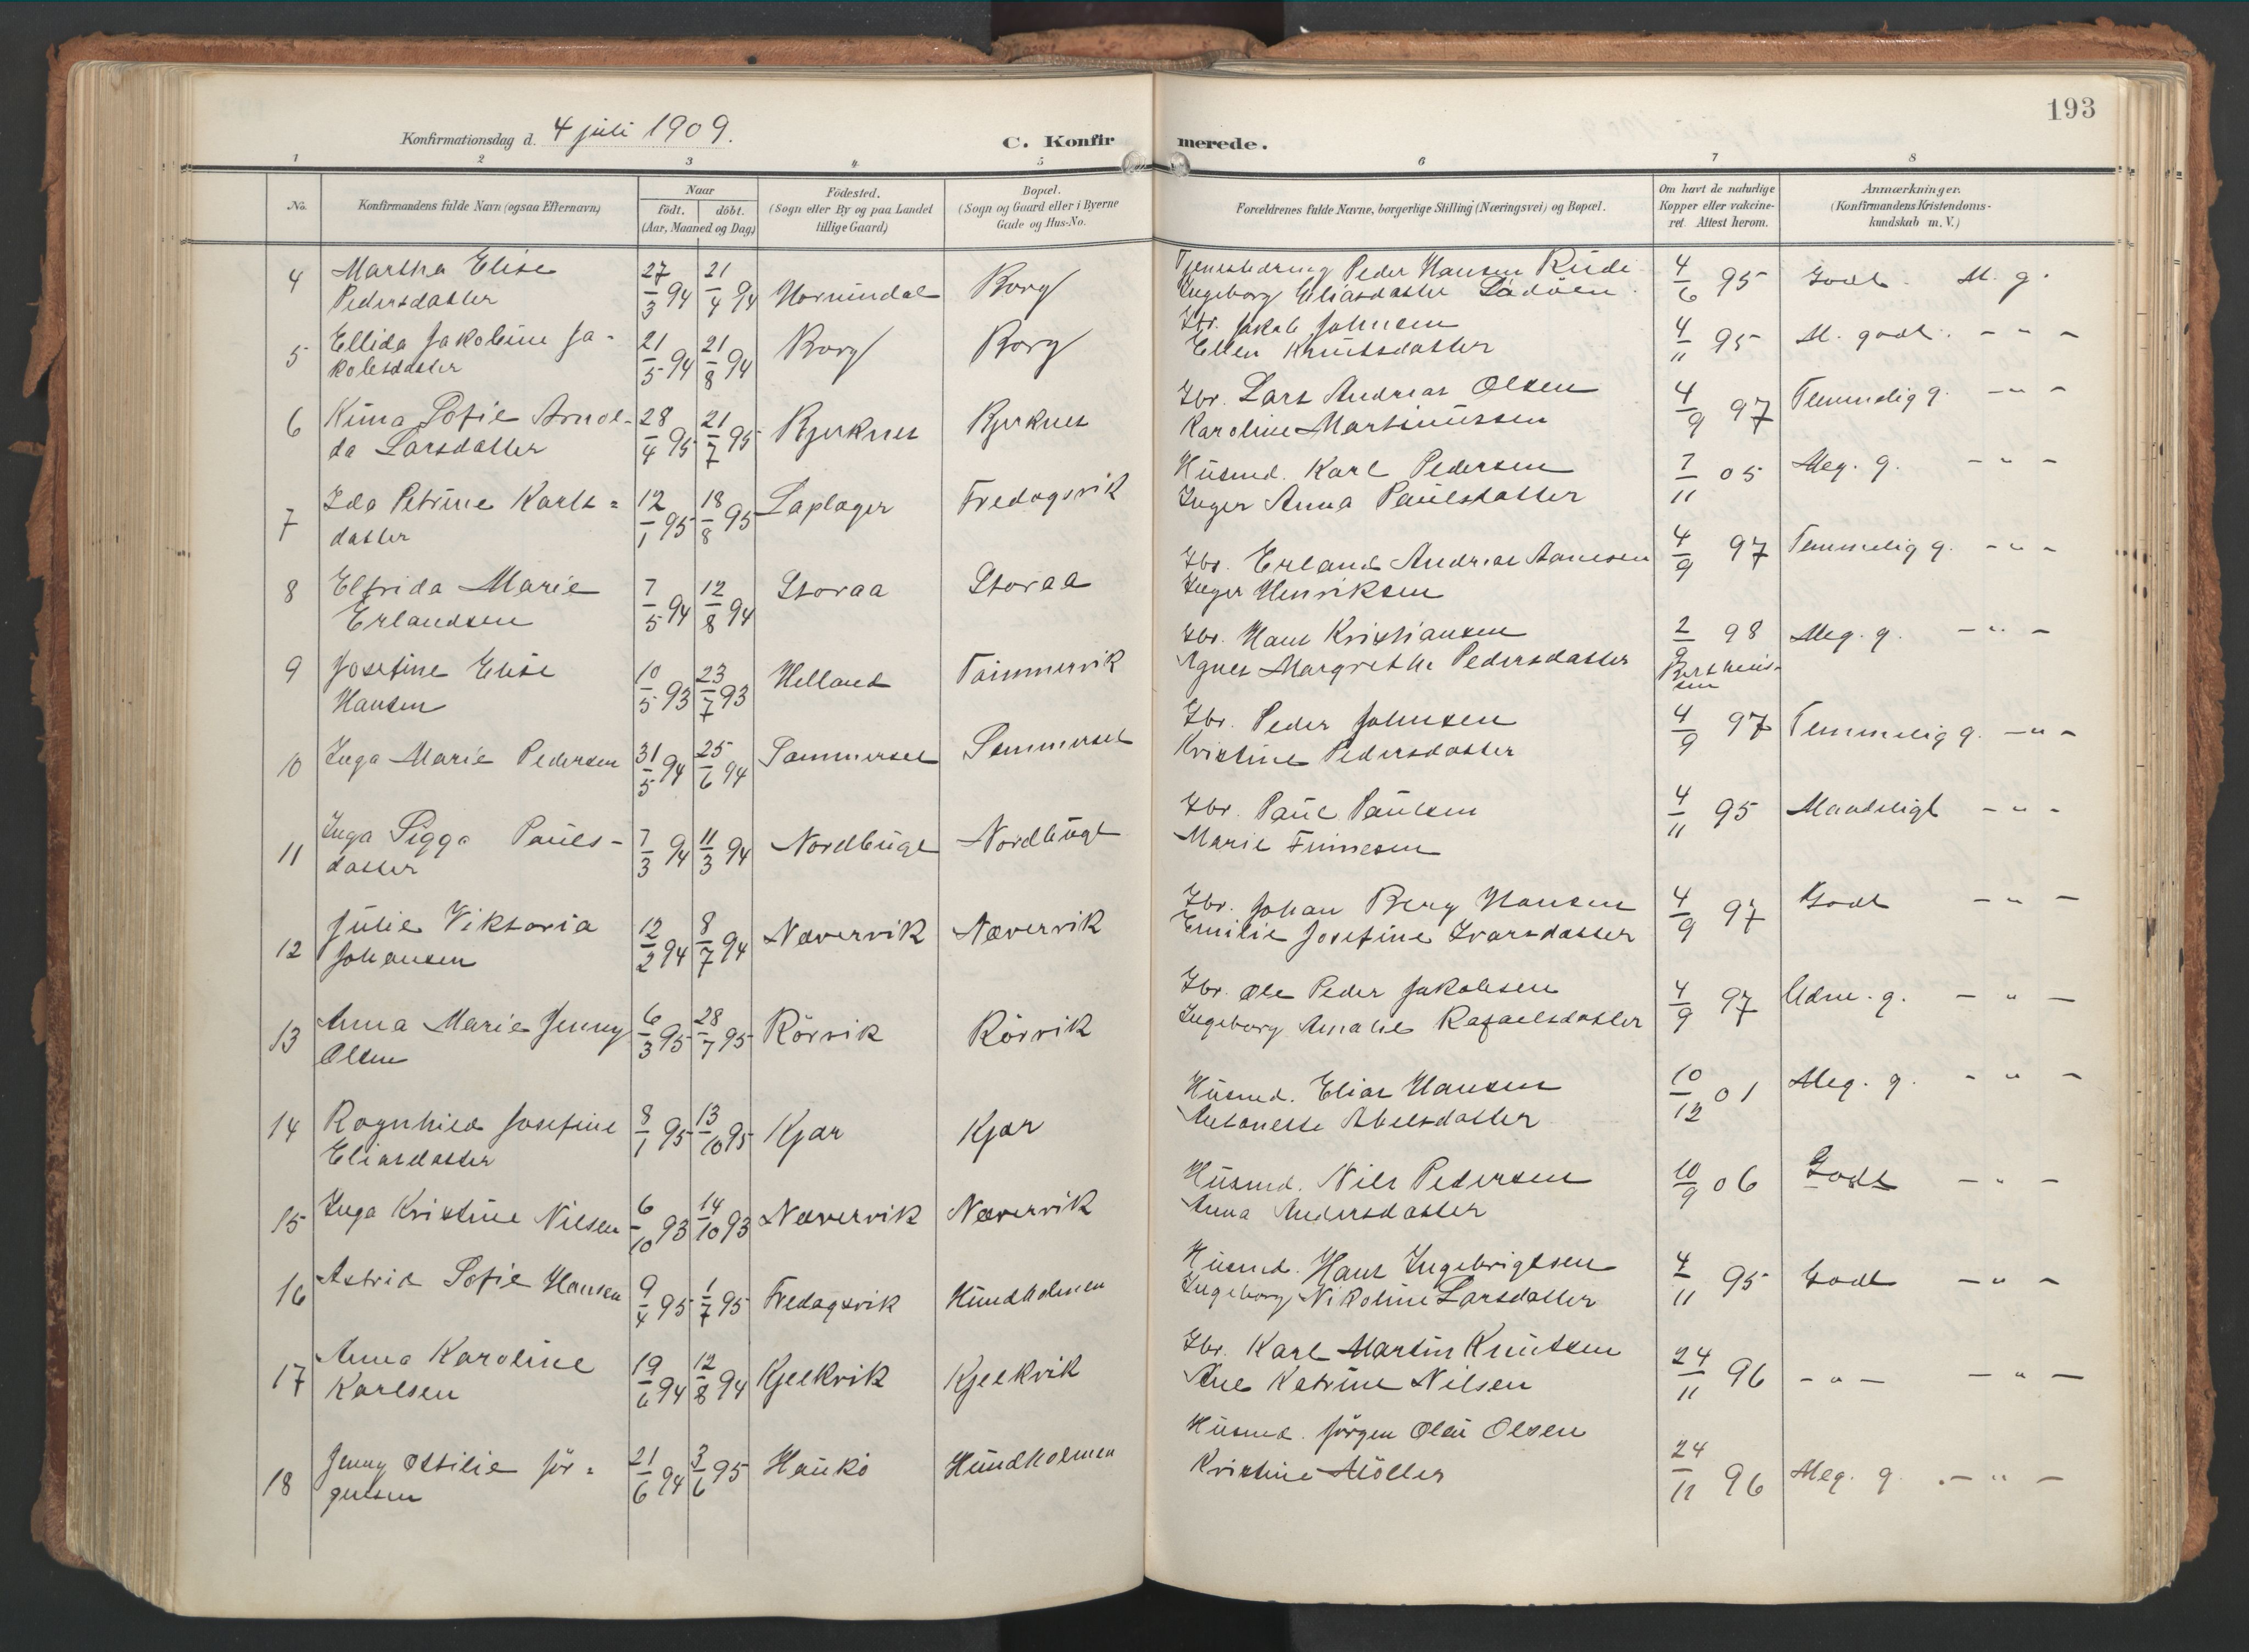 193
Konfirmationsdag d. 4 juli 1909.
C. Konfirmerede.
1 2 3 4 5 6 7 8
No.
Konfirmandens fulde Navn (ogsaa Efternavn)
Naar
födt. döbt.
(Aar, Maaned og Dag)
Födested.
(Sogn eller By og paa Landet
tillige Gaard)
Bopæl.
(Sogn og Gaard eller i Byerne
Gade og Hus-No.
Forældrenes fulde Navne, borgerlige Stilling (Næringsvei) og Bopæl.
Om havt de naturlige
Kopper eller vakcine-
ret. Attest herom.
Anmærkninger.
(Konfirmandens Kristendoms-
kundskab m. V.)
4 Martha Elise 27/3 94 21/4 94 Hornindal Borg Peder Hansen 4/6 95 Godt. M. g.
Pedersdatter Ingeborg Eliasdatter
5 Ellida Jakobine Ja- 21/5 94 21/8 94 Borg Borg Gbr. Jakob Johnsen 4/11 95 M. godt. - " -
kobsdatter Ellen Knutsdatter
6 Kima Sofie Arnol- 28/4 95 21/7 95 Bjerknes Bjerknes Gbr. Lars Andreas Olsen 4/9 97 Temmelig g. - " -
da Larsdatter Karoline Martinussen
7 Ida Petrine Karls= 12/1 95 18/8 95 Laplager Fredagsvik Husmd. Karl Pedersen 7/11 05 Meg. g. - " -
datter Inger Anna Paulsdatter
8 Elfrida Marie 7/5 94 12/8 94 Storaa Storaa Gbr. Erland Andreas Aanesen 4/9 97 Temmelig g. - " -
Erlandsen Inger Henriksen
9 Josefine Elise 10/5 93 23/7 93 Helland Tømmervik Gbr. Hans Kristiansen 2/9 98 Meg. g. - " -
Hansen Agnes Margrethe Pedersdatter
10 Inga Marie Pedersen 31/5 94 25/6 94 Sommersel Sommersel Gbr. Peder Johnsen 4/9 97 Temmelig g. - " -
Kristine Pedersdatter
11 Inga Sigga Pauls- 7/3 94 11/3 94 Nordbugt Nordbugt Gbr. Paul Paulsen 4/11 95 Maadeligt - " -
datter Marie Finnesen
12 Julie Viktoria 12/2 94 8/7 94 Nævervik Nævervik Gbr. Johan Berg Hansen 4/9 97 Godt - " -
Johansen Emilie Josefine Ivarsdatter
13 Anna Marie Jenny 6/3 95 28/7 95 Rörvik Rörvik Gbr. Ole Peder Jakobsen 4/9 97 Udm. g. - " -
Olsen Ingeborg Amalie Rafaelsdatter
14 Ragnhild Josefine 8/1 95 13/10 95 Kjær Kjær Husmd. Elias Hansen 10/12 01 Meg. g. - " -
Eliasdatter Antonette Abelsdatter
15 Inga Kristine Nilsen 6/10 93 14/10 93 Nævervik Nævervik Husmd. Nils Pedersen 10/9 06 Godt - " -
Anna Andersdatter
16 Astrid Sofie Hansen 9/4 95 1/7 95 Fredagsvik Hundholmen Husmd. Hans Ingebrigtsen 4/11 95 Godt - " -
Ingeborg Nikoline Larsdatter
17 Anna Karoline 19/6 94 12/8 94 Kjelkvik Kjelkvik Gbr. Karl Martin Knutsen 24/11 96 - " - - " -
Karlsen Ane Katrine Nilsen
18 Jenny Ottilie Jör= 21/6 94 3/6 95 Haukö Hundholmen Husmd. Jörgen Olai Olsen 24/11 96 Meg. g. - " -
gensen Kristine Möller